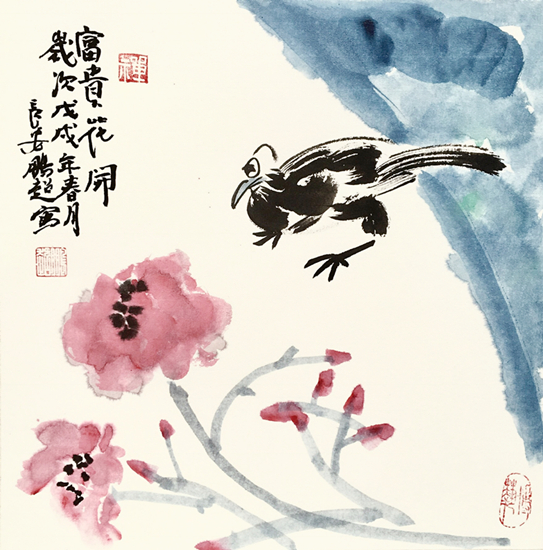 富貴花開
歲次戊戌年春月
長安鵬超寫
禪